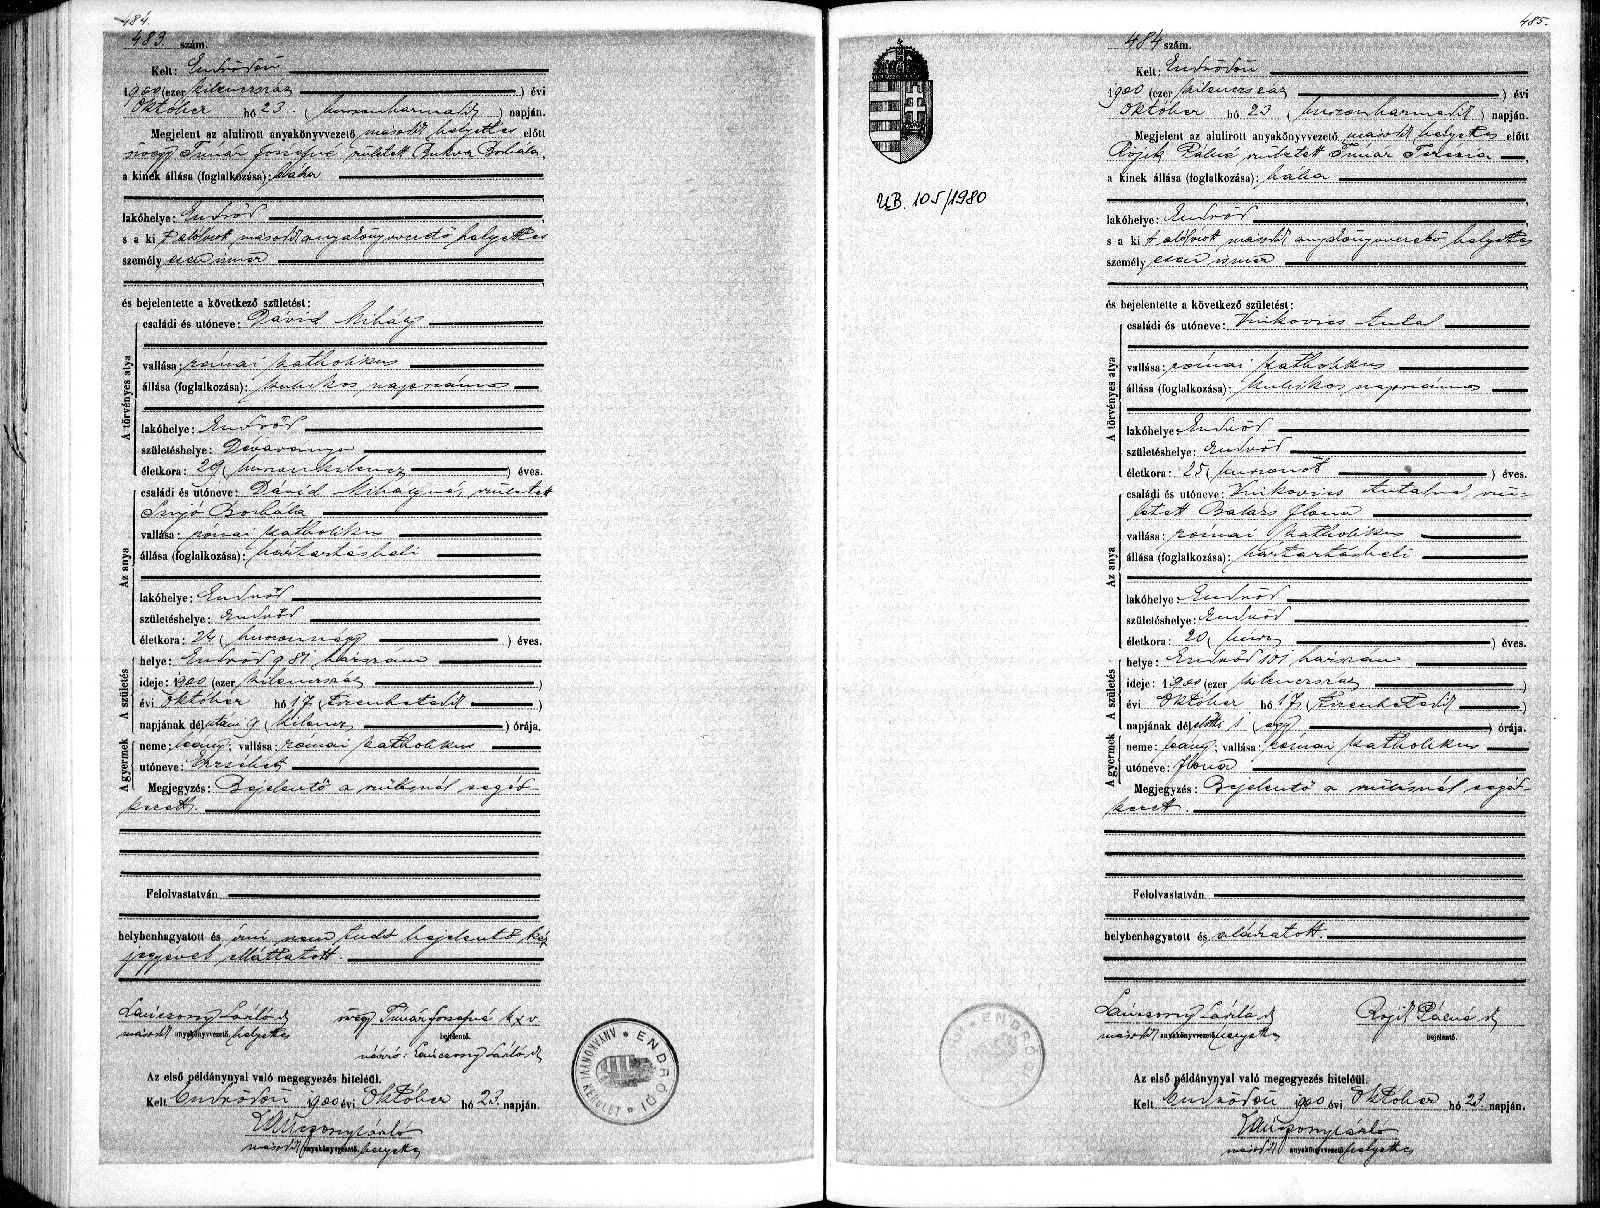 484.
483. szám.
Kelt: Endrődön
1900 (ezer kilencszáz ) évi
Október hó 23. ( huszonharmadik ) napján.
Megjelent az alulirott anyakönyvvezető második helyettes előtt
özvegy Timár Józsefné született Bukva Borbála,
a kinek állása (foglalkozása): bába
lakóhelye: Endrőd
s a kit alólirott második anyakönyvvezető helyettes
személyesen ismer
és bejelentette a következő születést:
A törvényes atya
családi és utóneve: Dávid Mihály
vallása: római katholikus
állása (foglalkozása): kubikos napszámos
lakóhelye: Endrőd
születéshelye: Dévaványa
életkora: 29 ( huszonkilencz ) éves.
Az anya
családi és utóneve: Dávid Mihályné, született
Borbála
vallása: római katholikus
állása (foglalkozása): háztartásbeli
lakóhelye: Endrőd
születéshelye: Endrőd
életkora: 24 ( huszonnégy ) éves.
A születés
helye: Endrőd 981 házszám
ideje: 1900 (ezer kilencszáz )
évi október hó 17 ( tizenhetedik )
napjának délutáni 9 ( kilencz ) órája.
A gyermek
neme: leány; vallása: római katholikus
utóneve: Erzsébet
Megjegyzés: Bejelentő a szülésnél segéd-
kezett.
Felolvastatván
helybenhagyatott és írni nem tudó bejelentő kéz
jegyével elláttatott.
László özvegy Timár Józsefné
második anyakönyvvezető helyettes bejelentő.
László
Az első példánynyal való megegyezés hiteléül.
Kelt Endrődön 1900 évi Október hó 23. napján.
László
második anyakönyvvezető helyettes
ENDRŐDI
485.
484 szám.
Kelt: Endrődön
1900 (ezer kilencszáz ) évi
Október hó 23 ( huszonharmadik ) napján.
Megjelent az alulirott anyakönyvvezető második helyettes előtt
Rojik Pálné született Timár Terézia,
a kinek állása (foglalkozása): bába
lakóhelye: Endrőd
s a kit alólirott második anyakönyvvezető helyettes
személyesen ismer
és bejelentette a következő születést:
A törvényes atya
családi és utóneve: Vinkovics Antal
vallása: római katholikus
állása (foglalkozása): kubikos napszámos
lakóhelye: Endrőd
születéshelye: Endrőd
életkora: 25 ( huszonöt ) éves.
Az anya
családi és utóneve: Vinkovics Antalné, szü-
letett Balázs Ilona
vallása: római katholikus
állása (foglalkozása): háztartásbeli
lakóhelye: Endrőd
születéshelye: Endrőd
életkora: 20 ( húsz ) éves.
A születés
helye: Endrőd 101 házszám
ideje: 1900 (ezer kilencszáz )
évi október hó 17 ( tizenhetedik )
napjának délelőtti 1 ( egy ) órája.
A gyermek
neme: leány; vallása: római katholikus
utóneve: Ilona
Megjegyzés: Bejelentő a szülésnél segéd-
kezett.
Felolvastatván
helybenhagyatott és aláíratott.
László Rojik Pálné
második anyakönyvvezető helyettes bejelentő.
Az első példánynyal való megegyezés hiteléül.
Kelt Endrődön 1900 évi Október hó 23 napján.
László
második anyakönyvvezető helyettes
U.B. 105/1980